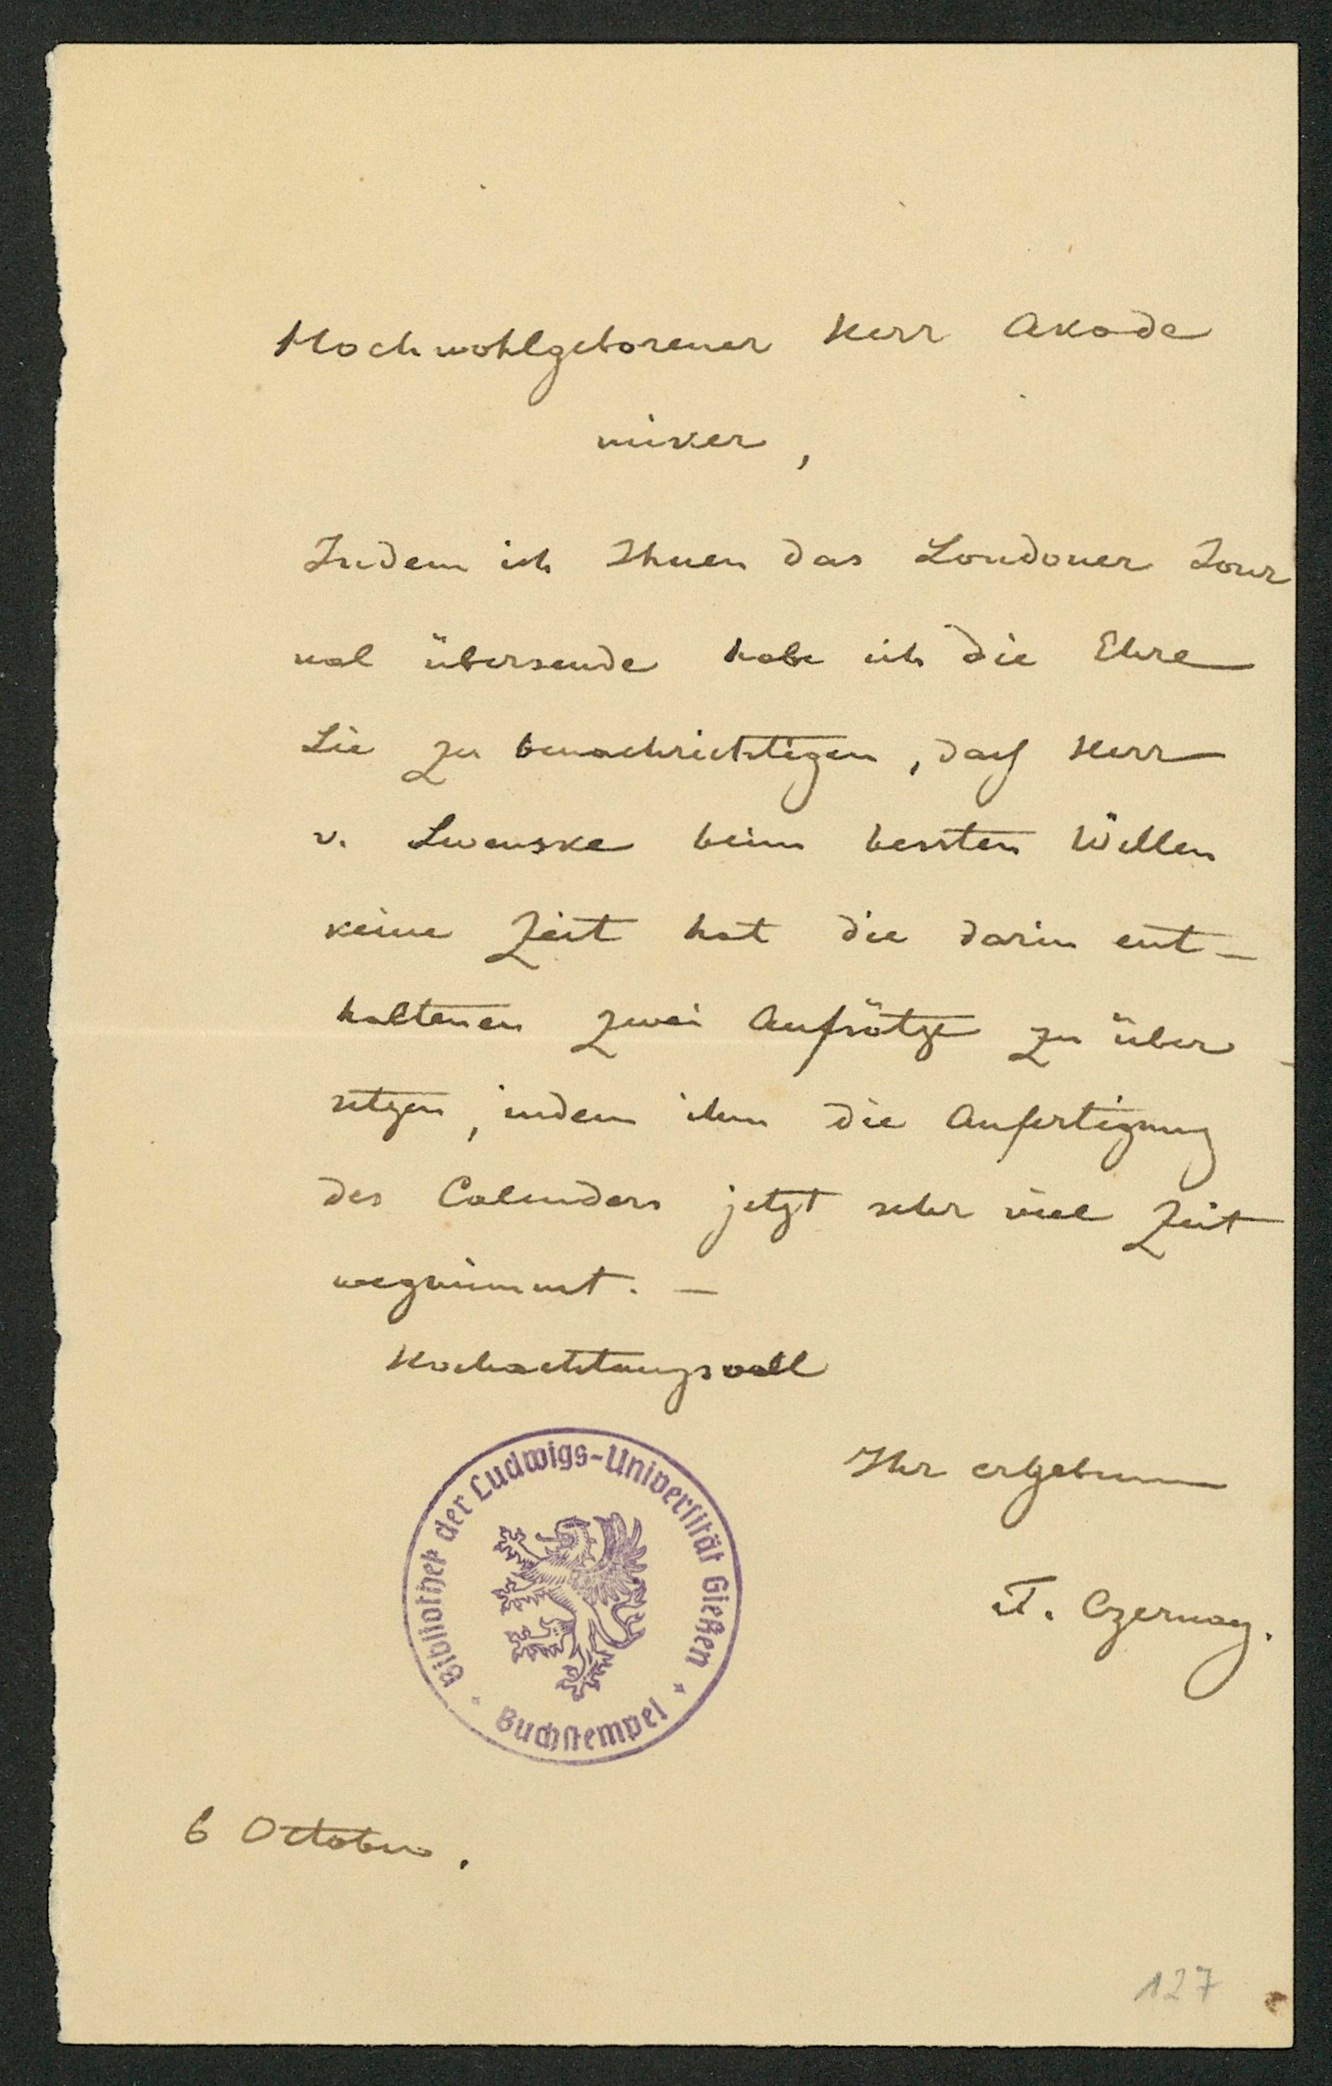 Hochwohlgeborener Herr Akade
miker,
Indem ich Ihnen das Londoner Jour
nal übersende habe ich die Ehre
Sie zu benachrichtigen, daß Herr
v. Swenske beim bessten Willen
keine Zeit hat die darin ent-
haltenen zwei Aufsätze zu über-
setzen, indem ihm die Anfertigung
des Calenders jetzt sehr viel Zeit
wegnimmt. —
Hochachtungsvoll
Ihr ergebener
T. Czernay.
Bibliothek der Ludwigs-Universität Gießen
Buchstempel
6 October.
127